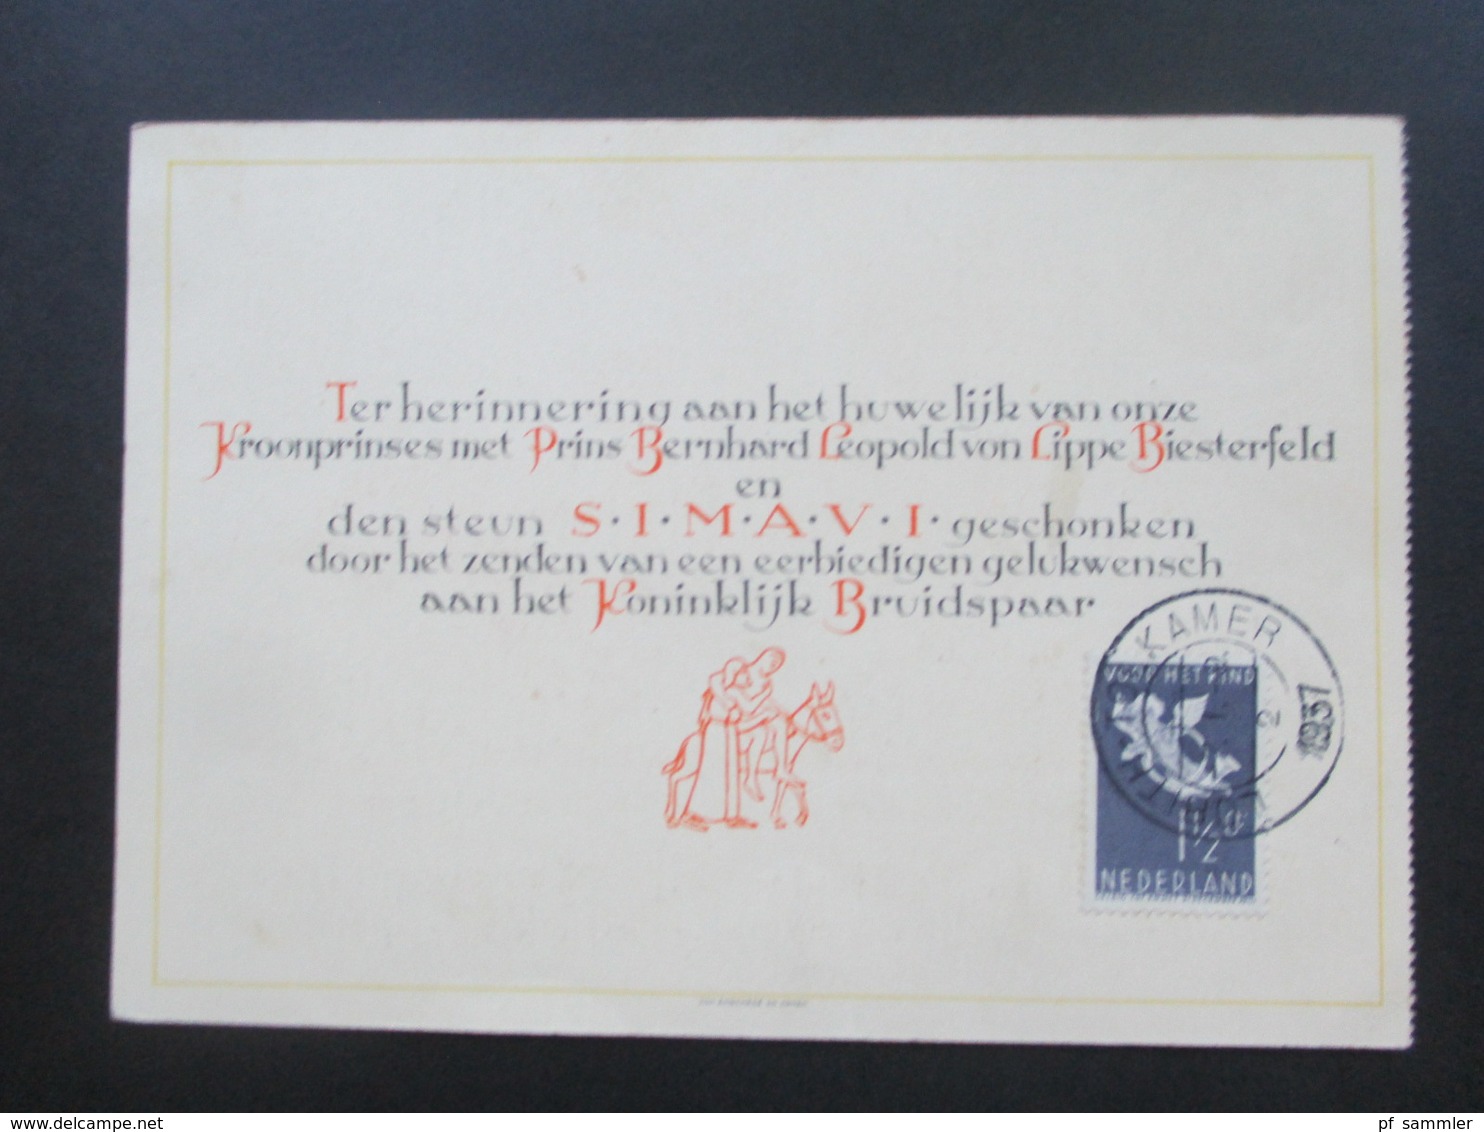 Ter herinnering aan het huwelijk van onze
Kroonprinses met Prins Bernhard Leopold von Lippe Biesterfeld
en
den steun S·I·M·A·V·I· geschonken
door het zenden van een eerbiedigen gelukwensch
aan het Koninklijk Bruidspaar
KAMER
1937
VOOR HET KIND
1½ ct
NEDERLAND
pf_sammler
www.delcampe.net